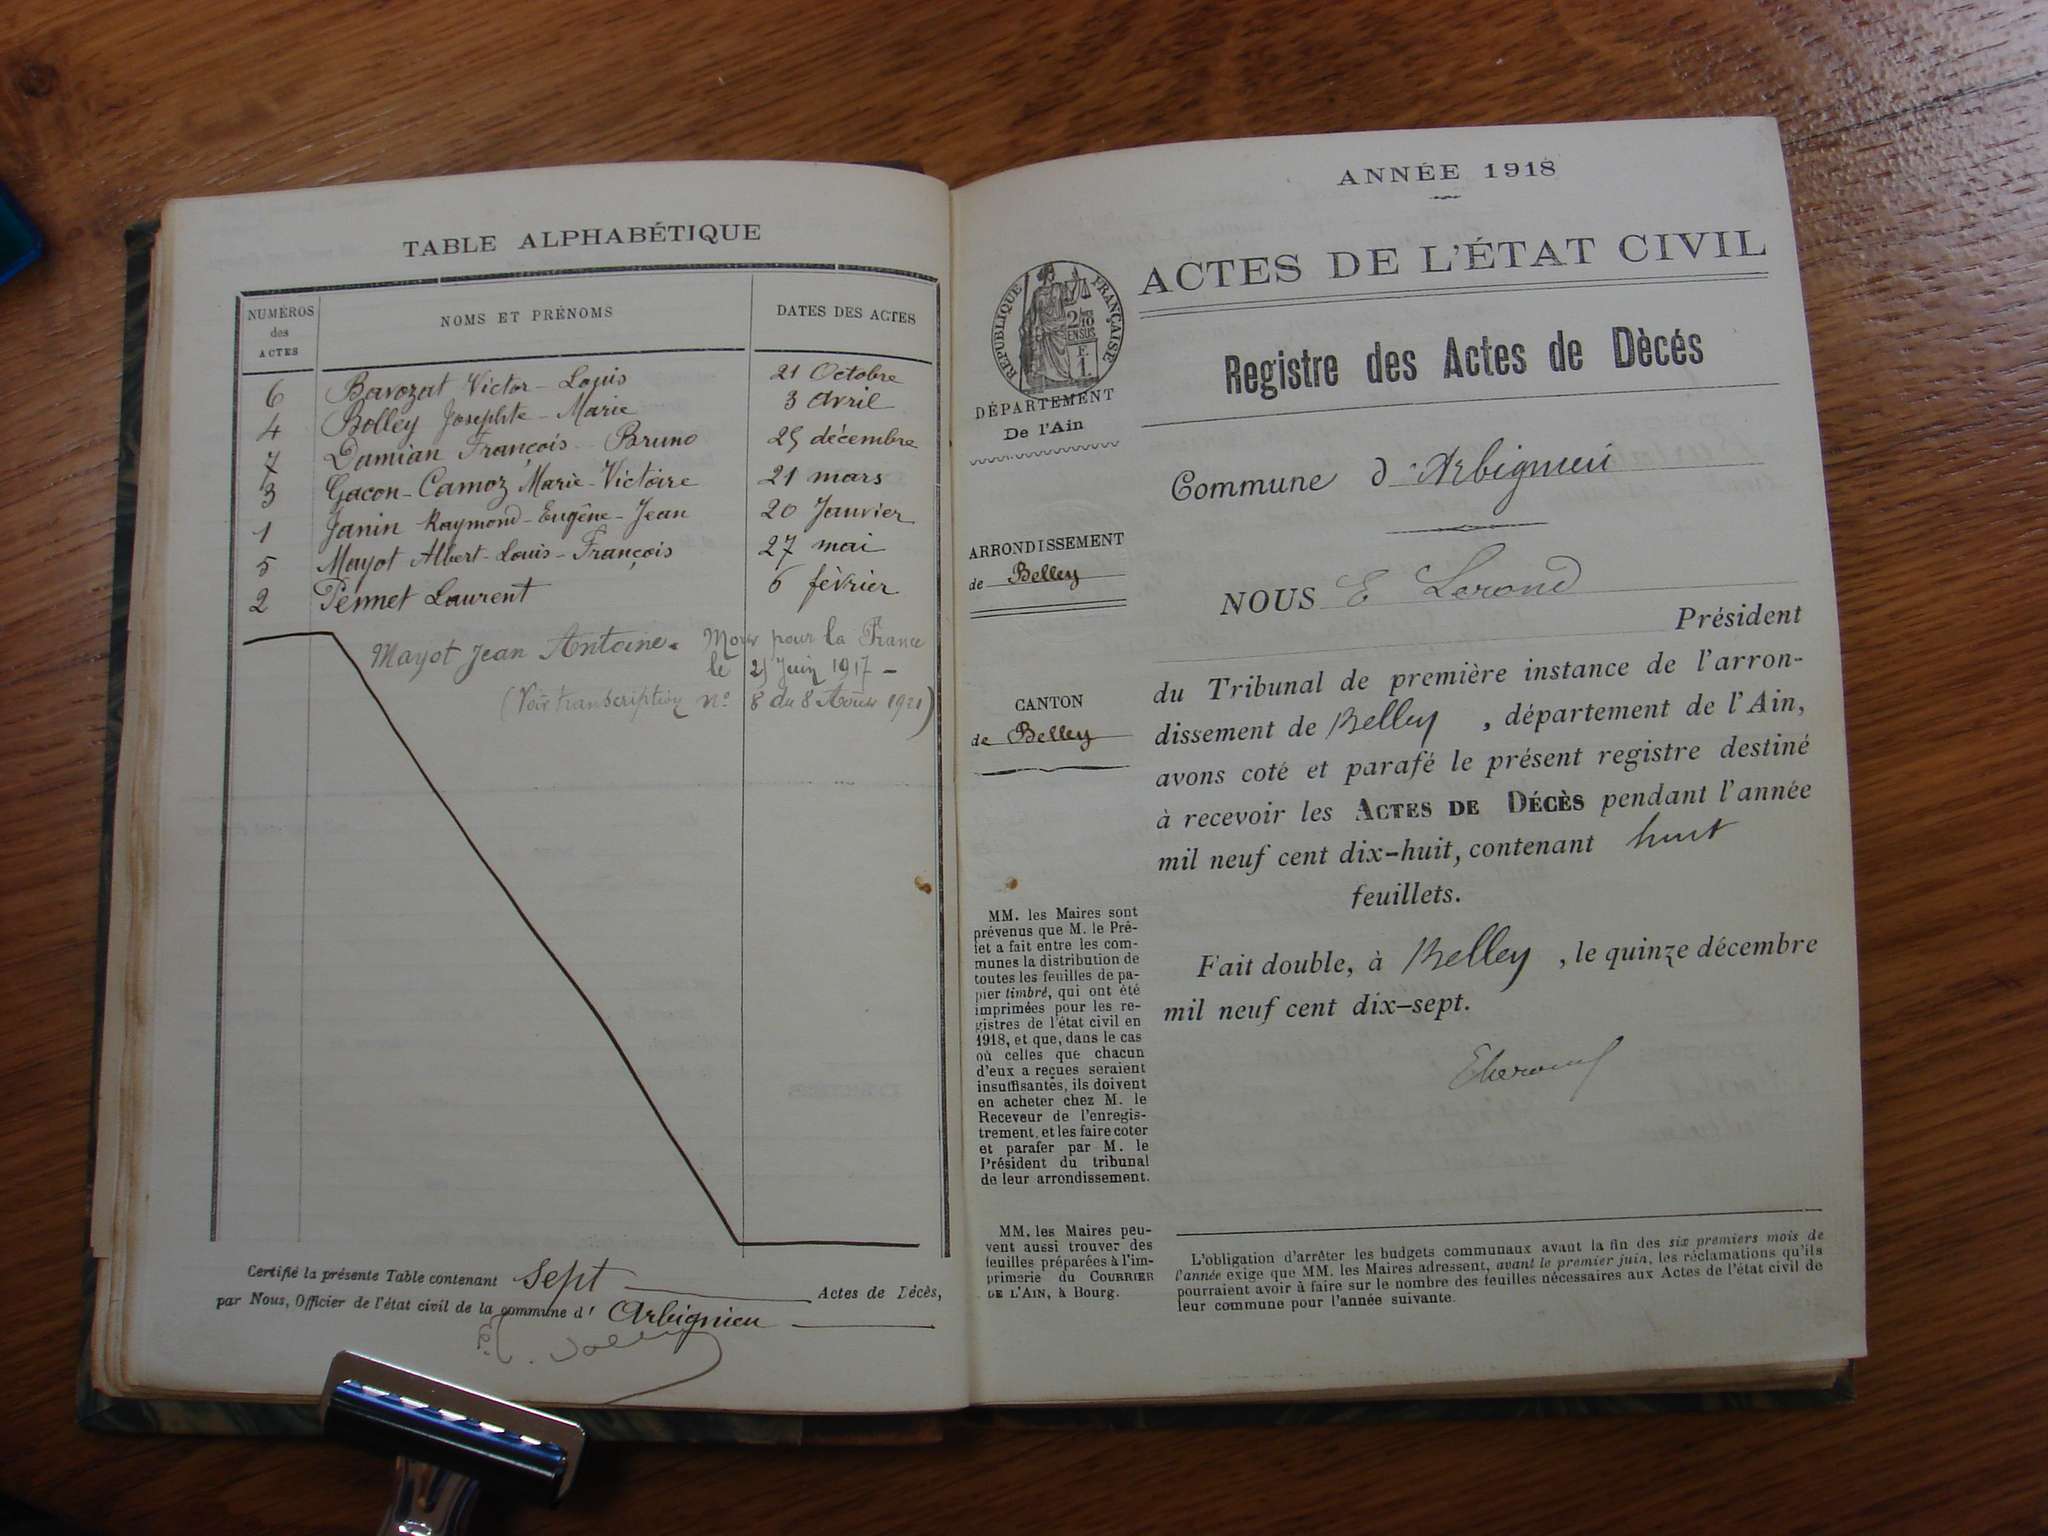 TABLE ALPHABÉTIQUE
NUMÉROS des ACTES
NOMS ET PRÉNOMS
DATES DES ACTES
6 Bavozat Victor-Louis 21 Octobre
4 Bolley Josephte-Marie 3 avril
7 Damian François-Bruno 25 décembre
3 Gacon-Camoz Marie-Victoire 21 mars
1 Janin Raymond-Eugène-Jean 20 Janvier
5 Mayot Albert-Louis-François 27 mai
2 Pennet Laurent 6 février
Mayot Jean Antoine. Mort pour la France
le 25 Juin 1917 -
(Voir transcription n° 8 du 8 Août 1921)
Certifié la présente Table contenant sept Actes de Décès,
par Nous, Officier de l'état civil de la commune d' Arbignieu
ANNÉE 1918
ACTES DE L'ÉTAT CIVIL
RÉPUBLIQUE FRANÇAISE
2/10 EN SUS
F. 1.
DÉPARTEMENT
De l'Ain
ARRONDISSEMENT
de Belley
CANTON
de Belley
MM. les Maires sont
prévenus que M. le Pré-
fet a fait entre les com-
munes la distribution de
toutes les feuilles de pa-
pier timbré, qui ont été
imprimées pour les re-
gistres de l'état civil en
1918, et que, dans le cas
où celles que chacun
d'eux a reçues seraient
insuffisantes, ils doivent
en acheter chez M. le
Receveur de l'enregis-
trement, et les faire coter
et parafer par M. le
Président du tribunal
de leur arrondissement.
MM. les Maires peu-
vent aussi trouver des
feuilles préparées à l'im-
primerie du COURRIER
DE L'AIN, à Bourg.
Registre des Actes de Dècés
Commune d'Arbignieu
NOUS E Lerond
Président
du Tribunal de première instance de l'arron-
dissement de Belley, département de l'Ain,
avons coté et parafé le présent registre destiné
à recevoir les ACTES DE DÉCÈS pendant l'année
mil neuf cent dix-huit, contenant huit
feuillets.
Fait double, à Belley, le quinze décembre
mil neuf cent dix-sept.
L'obligation d'arrêter les budgets communaux avant la fin des six premiers mois de
l'année exige que MM. les Maires adressent, avant le premier juin, les réclamations qu'ils
pourraient avoir à faire sur le nombre des feuilles nécessaires aux Actes de l'état civil de
leur commune pour l'année suivante.